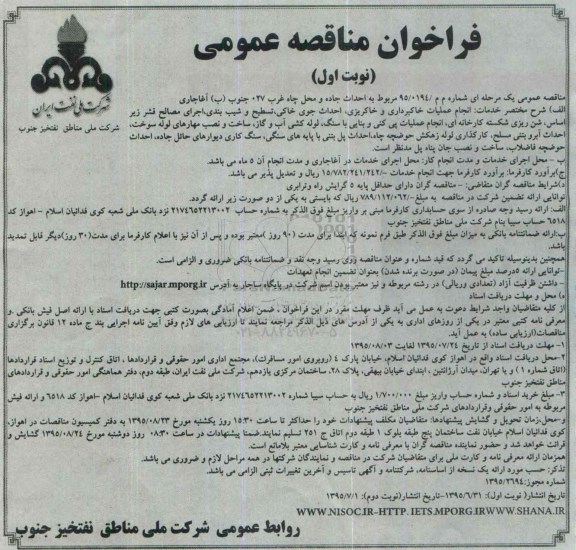 فراخوان مناقصه عمومی
(نوبت اول)
شرکت ملی نفت ایران
شرکت ملی مناطق نفتخیز جنوب
مناقصه عمومی یک مرحله ای شماره م م /۹۵/۰۱۹٤ مربوط به احداث جاده و محل چاه غرب ۰۲۷ جنوب (ب) آغاجاری
الف) شرح مختصر خدمات: انجام عملیات خاکبرداری و خاکریزی، احداث جوی خاکی،تسطیح و شیب بندی،اجرای مصالح قشر زیر
اساس، شن ریزی شکسته کارخانه ای، انجام عملیات پی کنی و بنایی با سنگ، لوله کشی آب و گاز، ساخت و نصب مهارهای لوله سوخت،
احداث آبرو بتنی مسلح، کارگذاری لوله زهکش حوضچه چاه،احداث پل بتنی با پایه های سنگی، سنگ کاری دیوارهای حائل جاده، احداث
حوضچه فاضلاب، ساخت و نصب جان پناه پل مدنظر است.
ب - محل اجرای خدمات و مدت انجام کار: محل اجرای خدمات در آغاجاری و مدت انجام آن ۵ ماه می باشد.
ج)برآورد کارفرما: برآورد کارفرما جهت انجام خدمات -/۱۵/۷۸۲/۲۴۱/۲۴۲ ریال و تعدیل پذیر می باشد.
د)شرایط مناقصه گران متقاضی: - مناقصه گران دارای حداقل پایه ۵ گرایش راه وترابری
توانایی ارائه تضمین شرکت در مناقصه به مبلغ-/۷۸۹/۱۱۲/۰۶۲ ریال که بایستی به یکی از دو صورت زیر ارائه گردد.
الف: ارائه رسید وجه صادره از سوی حسابداری کارفرما مبنی بر واریز مبلغ فوق الذکر به شماره حساب ۲۱۷٤٦۵۲۲۱۳۰۰۲ نزد بانک ملی شعبه کوی فدائیان اسلام – اهواز کد
۶۵۱۸ حساب سیبا بنام شرکت ملی مناطق نفتخیز جنوب
ب:ارائه ضمانتنامه بانکی به میزان مبلغ فوق الذکر طبق فرم نمونه که باید برای مدت (۹۰ روز )معتبر بوده و پس از آن نیز با اعلام کارفرما برای مدت(۳۰ روز)دیگر قابل تمدید
باشد.
همچنین بدینوسیله تاکید می گردد که قید شماره و عنوان مناقصه روی رسید وجه نقد و ضمانتنامه بانکی ضروری و الزامی است.
-توانایی ارائه ۵درصد مبلغ پیمان (در صورت برنده شدن) بعنوان تضمین انجام تعهدات
- داشتن ظرفیت آزاد (تعدادی وریالی) در رشته مربوطه و نیز معتبر بودن اسم شرکت در پایگاه ساجار به آدرس http://sajar.mporg.ir
ه) محل و مهلت دریافت اسناد
از کلیه متقاضیان واجد شرایط دعوت به عمل می آید ظرف مهلت مقرر در این فراخوان ، ضمن اعلام آمادگی بصورت کتبی جهت دریافت اسناد با ارائه اصل فیش بانکی .و
معرفی نامه کتبی معتبر در یکی از روزهای اداری به یکی از آدرس های ذیل الذکر مراجعه نمایند تا ارزیابی های لازم وفق آیین نامه اجرایی بند ج ماده ۱۲ قانون برگزاری
مناقصات(ارزیابی ساده) به عمل آید.
۱- مهلت دریافت اسناد از تاریخ ۱۳۹۵/۰۷/۲٤ لغایت ۱۳۹۵/۰۸/۰۳
۲-محل دریافت اسناد واقع در اهواز کوی فدائیان اسلام، خیابان پارک ٤ (روبروی امور مسافرت)، مجتمع اداری امور حقوقی و قراردادها ، اتاق کنترل و توزیع اسناد قراردادها
(اتاق شماره ۱ ) و یا تهران، میدان آرژانتین ، ابتدای خیابان بیهقی، پلاک ۲۸، ساختمان مرکزی یازدهم، شرکت ملی نفت ایران، طبقه دوم، دفتر هماهنگی امور حقوقی و قراردادهای
مناطق نفتخیز جنوب
۳- مبلغ خرید اسناد و شماره حساب واریز مبلغ ۱/۷۰۰/۰۰۰ ریال به حساب سیبا شماره ۲۱۷٤٦۵۲۲۱۳۰۰۲ نزد بانک ملی شعبه کوی فدائیان اسلام –اهواز کد ۶۵۱۸ و ارائه فیش
مربوطه به امور حقوقی وقراردادهای شرکت ملی مناطق نفتخیز جنوب
و-محل،زمان تحویل و گشایش پیشنهادها: متقاضیان مکلف پیشنهادات خود را حداکثر تا ساعت ۱۵:۳۰ روز یکشنبه مورخ ۱۳۹۵/۰۸/۲۳ به دفتر کمیسیون مناقصات در اهواز،
کوی فدائیان اسلام خیابان نفت ساختمان پنج طبقه بلوک ۱ طبقه دوم اتاق ج ۲۵۱ تسلیم نمایند.ضمنا پیشنهادات در ساعت ۰۸:۳۰ روز دوشنبه مورخ ۱۳۹۵/۰۸/۲٤ گشایش و
قرائت خواهد شد و حضور نماینده مناقصه گران با معرفی نامه و کارت شناسایی معتبر بلامانع است.
همزمان ارائه معرفی نامه و کارت ملی برای متقاضیان شرکت در مناقصه و نمایندگان شرکتها در همه مراحل لازم و ضروری می باشد.
تذکر: حسب مورد ارائه یک نسخه از اساسنامه، شرکتنامه و آگهی تاسیس و آخرین تغییرات ثبتی الزامی می باشد.
شماره مجوز:۱۳۹۵/۲۶۹٤
تاریخ انتشار( نوبت اول): ۱۳۹۵/٦/۳۱-تاریخ انتشار(نوبت دوم): ۱۳۹۵/۷/۱
WWW.NISOC.IR-HTTP. IETS.MPORG.IRWWW.SHANA.IR
روابط عمومی شرکت ملی مناطق نفتخیز جنوب